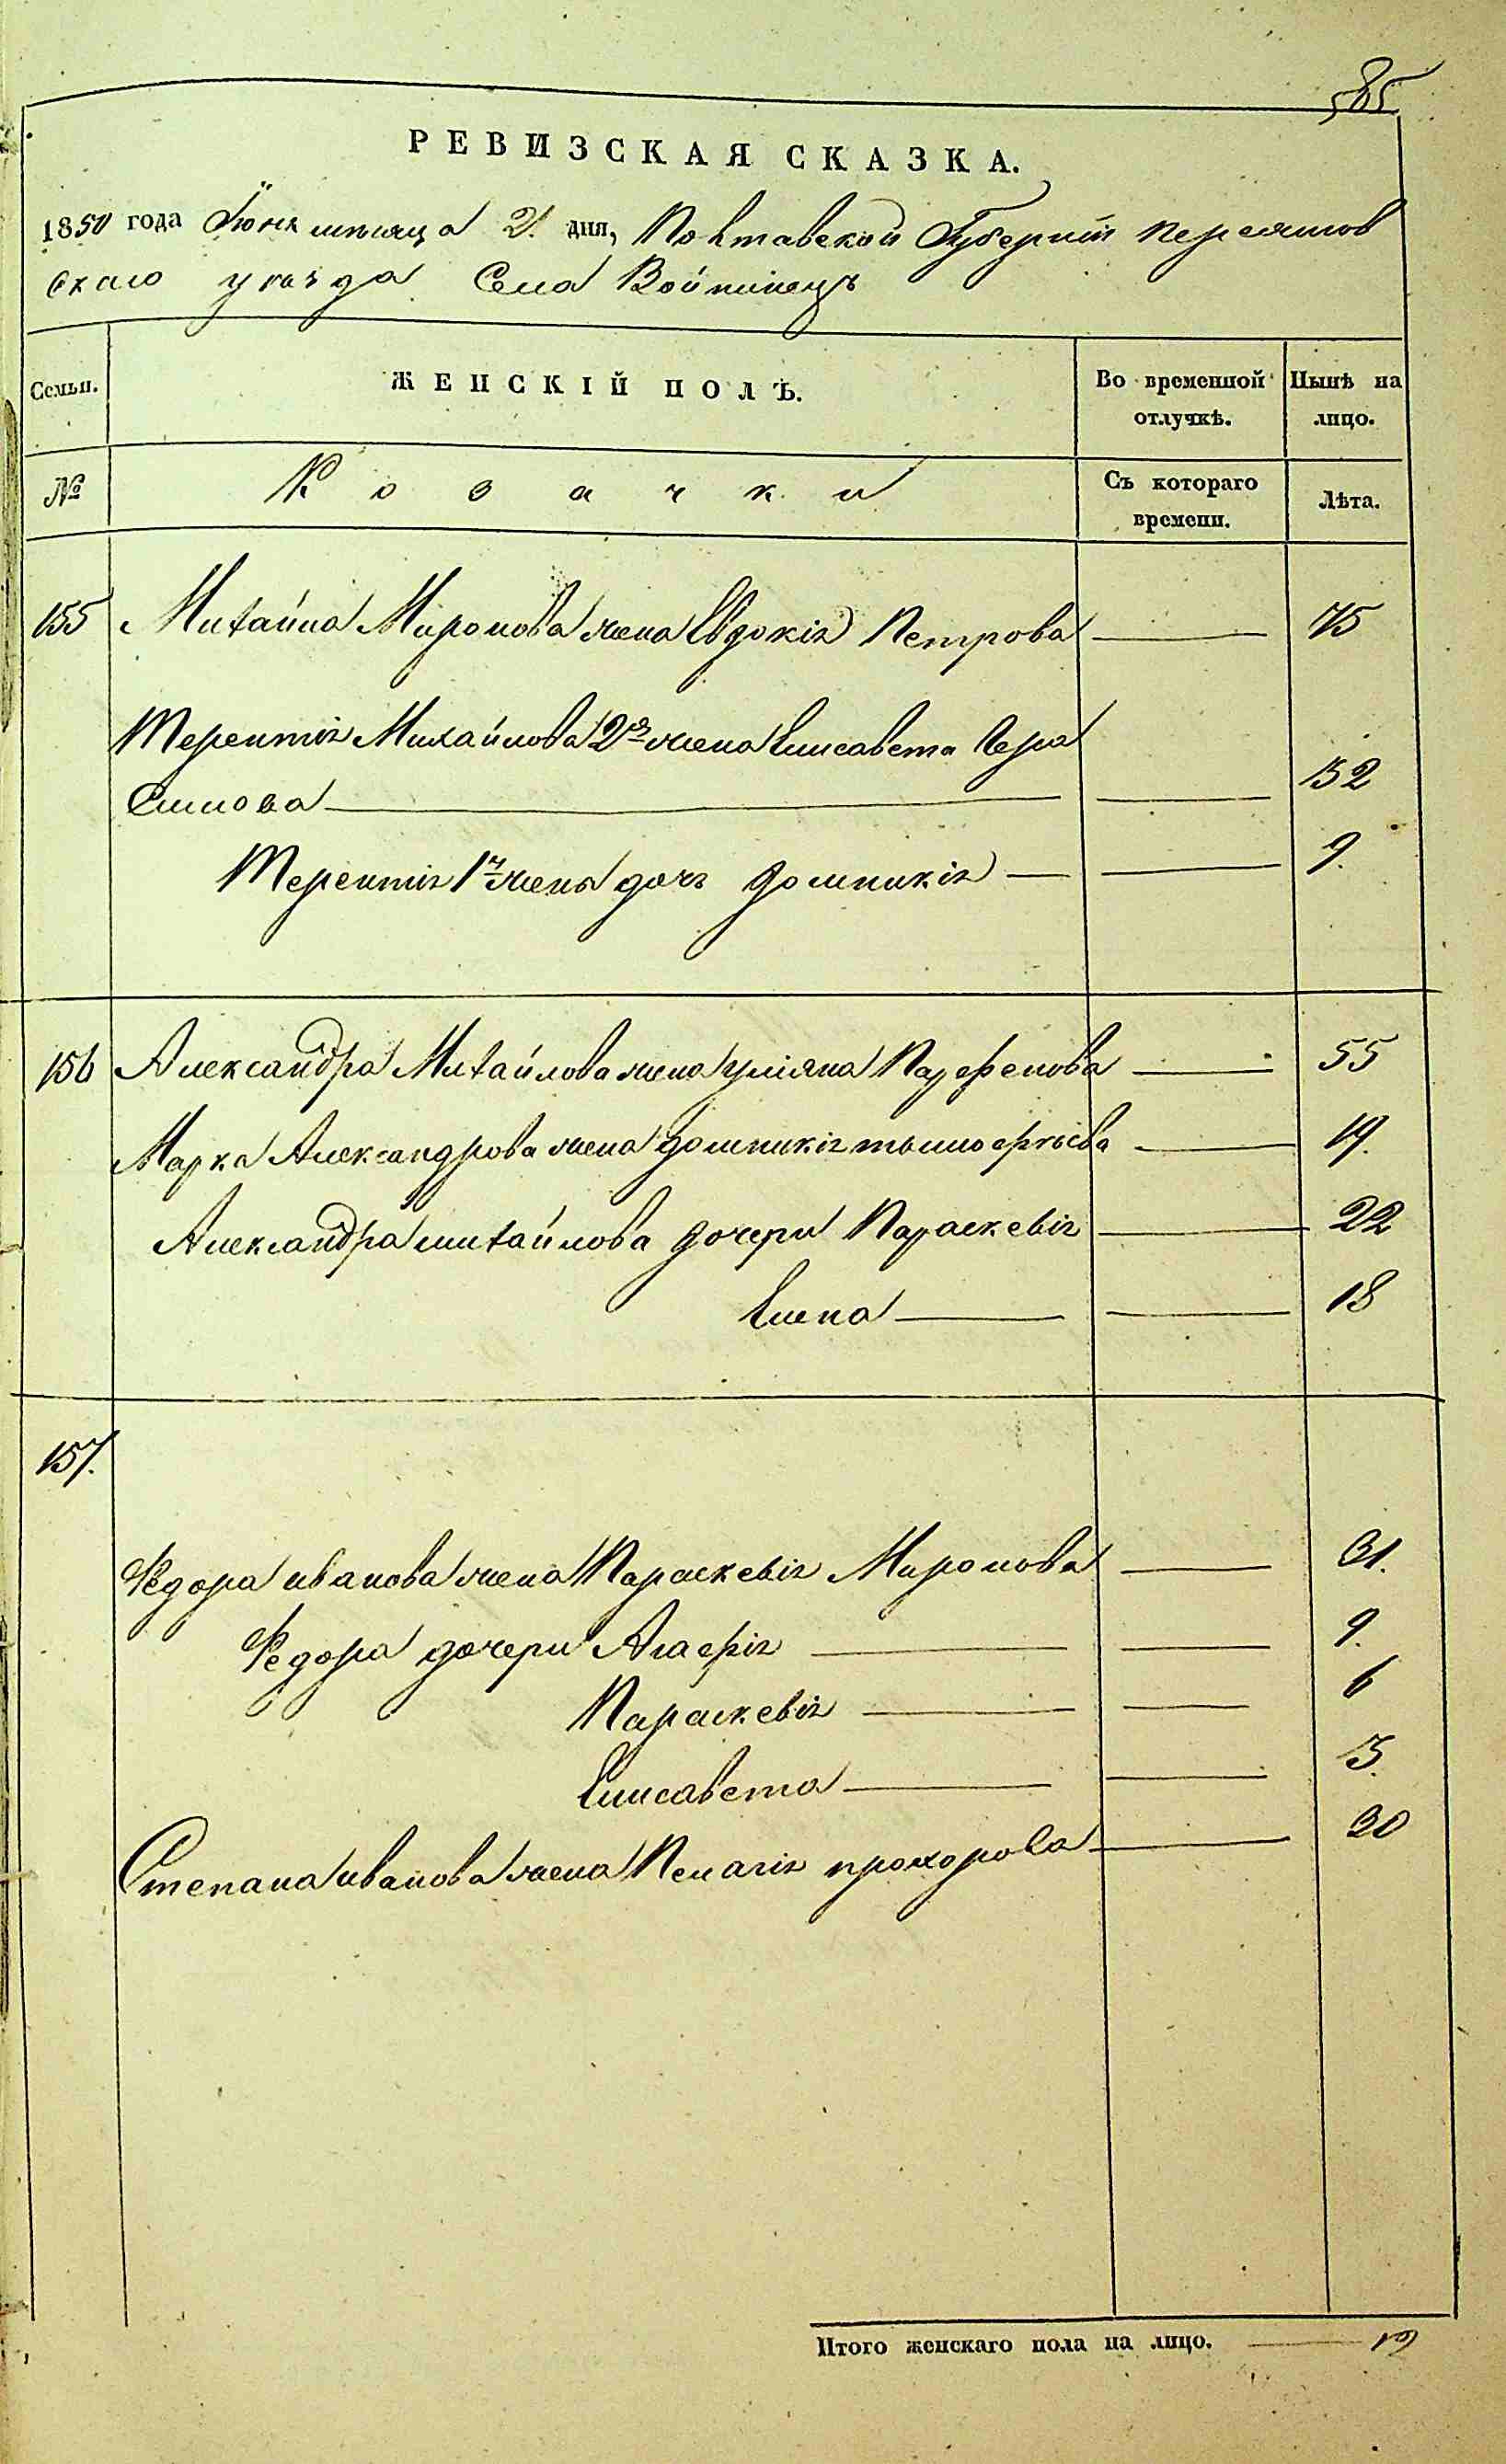 585
РЕВИЗСКАЯ СКАЗКА.
1850 года Іюня мѣсяца 2. дня, Полтавской Губерніи Переяслов
скаго уѣзда Села Войтовецъ
Семьи. ЖЕНСКІЙ ПОЛЪ. Во временной отлучкѣ. Нынѣ на лицо.
№ Козачки Съ котораго времени. Лѣта.
155 Михайла Миронова жена Евдокія Петрова 75
Терентія Михайлова 2я жена Елисавета Гера
симова 32
Терентія 1й жены дочь Домникія 9.
156 Александра Михайлова жена Уліяна Парфенова 55
Марка Александрова жена Домникія Тимофѣева 19.
Александра Михайлова дочери Параскевія 22
Елена 18
157.
Федора Иванова жена Параскевія Миронова 31.
Федора дочери Агафія 9.
Параскевія 6
Елисавета 3.
Степана Иванова жена Пелагія Прохорова 20
Итого женскаго пола на лицо. 12